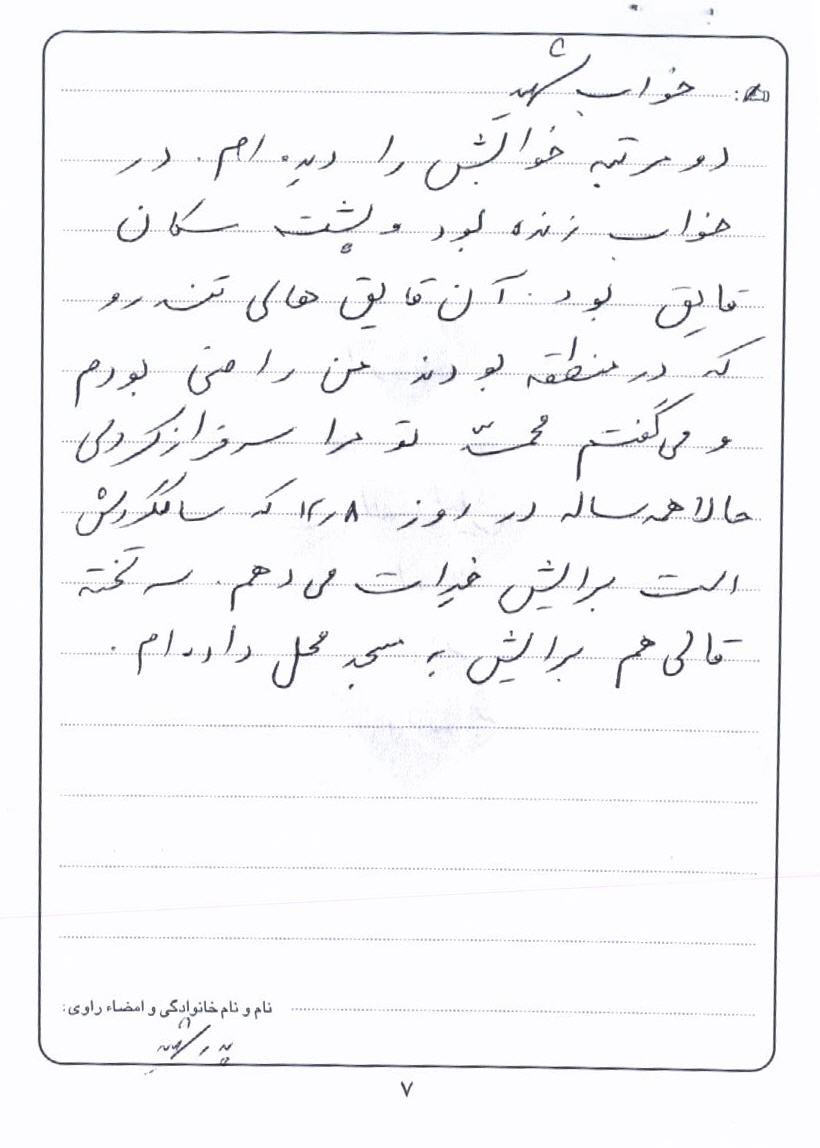 خواب شهید
دو مرتبه خوابش را دیده ام. در
خواب زنده بود و پشت سکان
قایق بود. آن قایق های تندرو
که در منطقه بودند من راضی بودم
و می گفتم محمّد تو مرا سرفراز کردی
حالا همه ساله در روز ۱۲٫۸ که سالگردش
است برایش خیرات می دهم. سه تخته
قالی هم برایش به مسجد محل داده ام.
نام و نام خانوادگی و امضاء راوی:
پدر شهید
۷